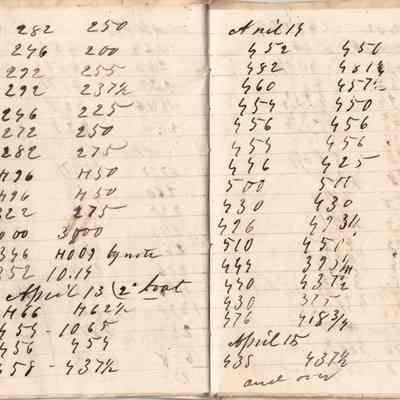 282 250
246 200
292 255
292 237½
246 225
272 250
282 275
496 450
496 450
322 275
3000
346 4009 by note
352 10.14
April 13 (2d boat
466 462½
454 - 1065
456 454
458 - 437½
April 14
452 450
482 481¼
460 457½
454 450
456 456
454 456
446 425
500 511
430 430
496
510 451
444
440 437½
430 375
476 418¾
April 15
435 437½
and over